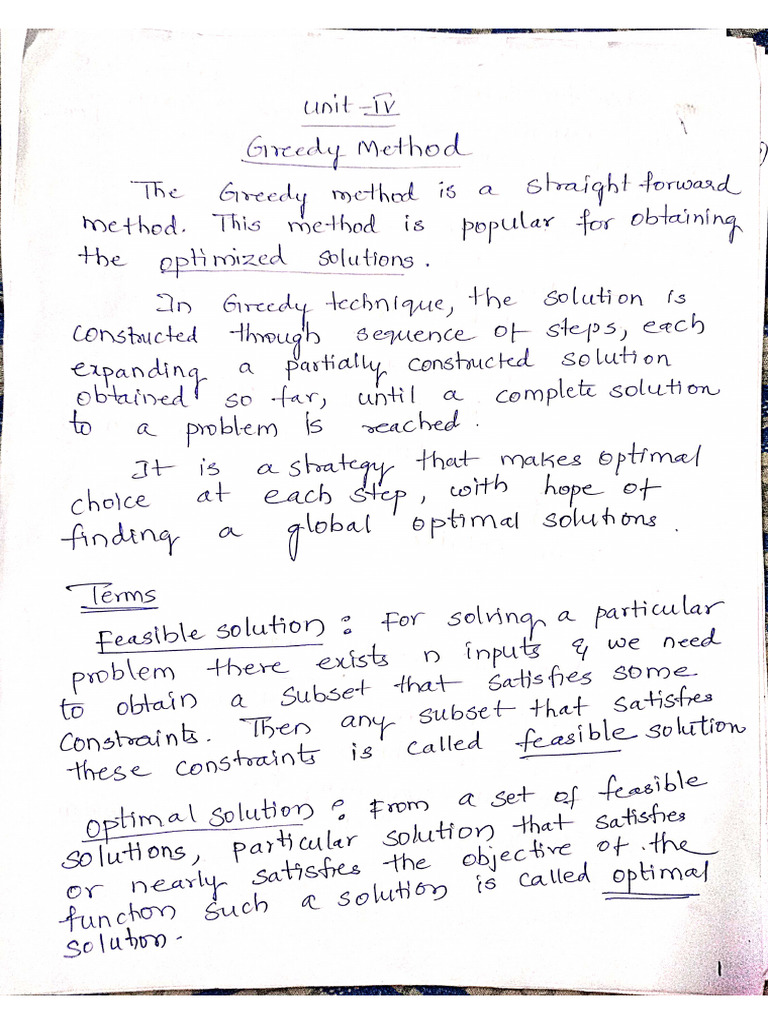 Unit-IV
Greedy Method
The Greedy method is a straight forward
method. This method is popular for obtaining
the optimized solutions.
In Greedy technique, the solution is
constructed through sequence of steps, each
expanding a partially constructed solution
obtained so far, until a complete solution
to a problem is reached.
It is a strategy that makes optimal
choice at each step, with hope of
finding a global optimal solutions.
Terms
Feasible solution : For solving a particular
problem there exists n inputs & we need
to obtain a subset that satisfies some
constraints. Then any subset that satisfies
these constraints is called feasible solution
Optimal solution : From a set of feasible
solutions, particular solution that satisfies
or nearly satisfies the objective of the
function such a solution is called optimal
solution.
1